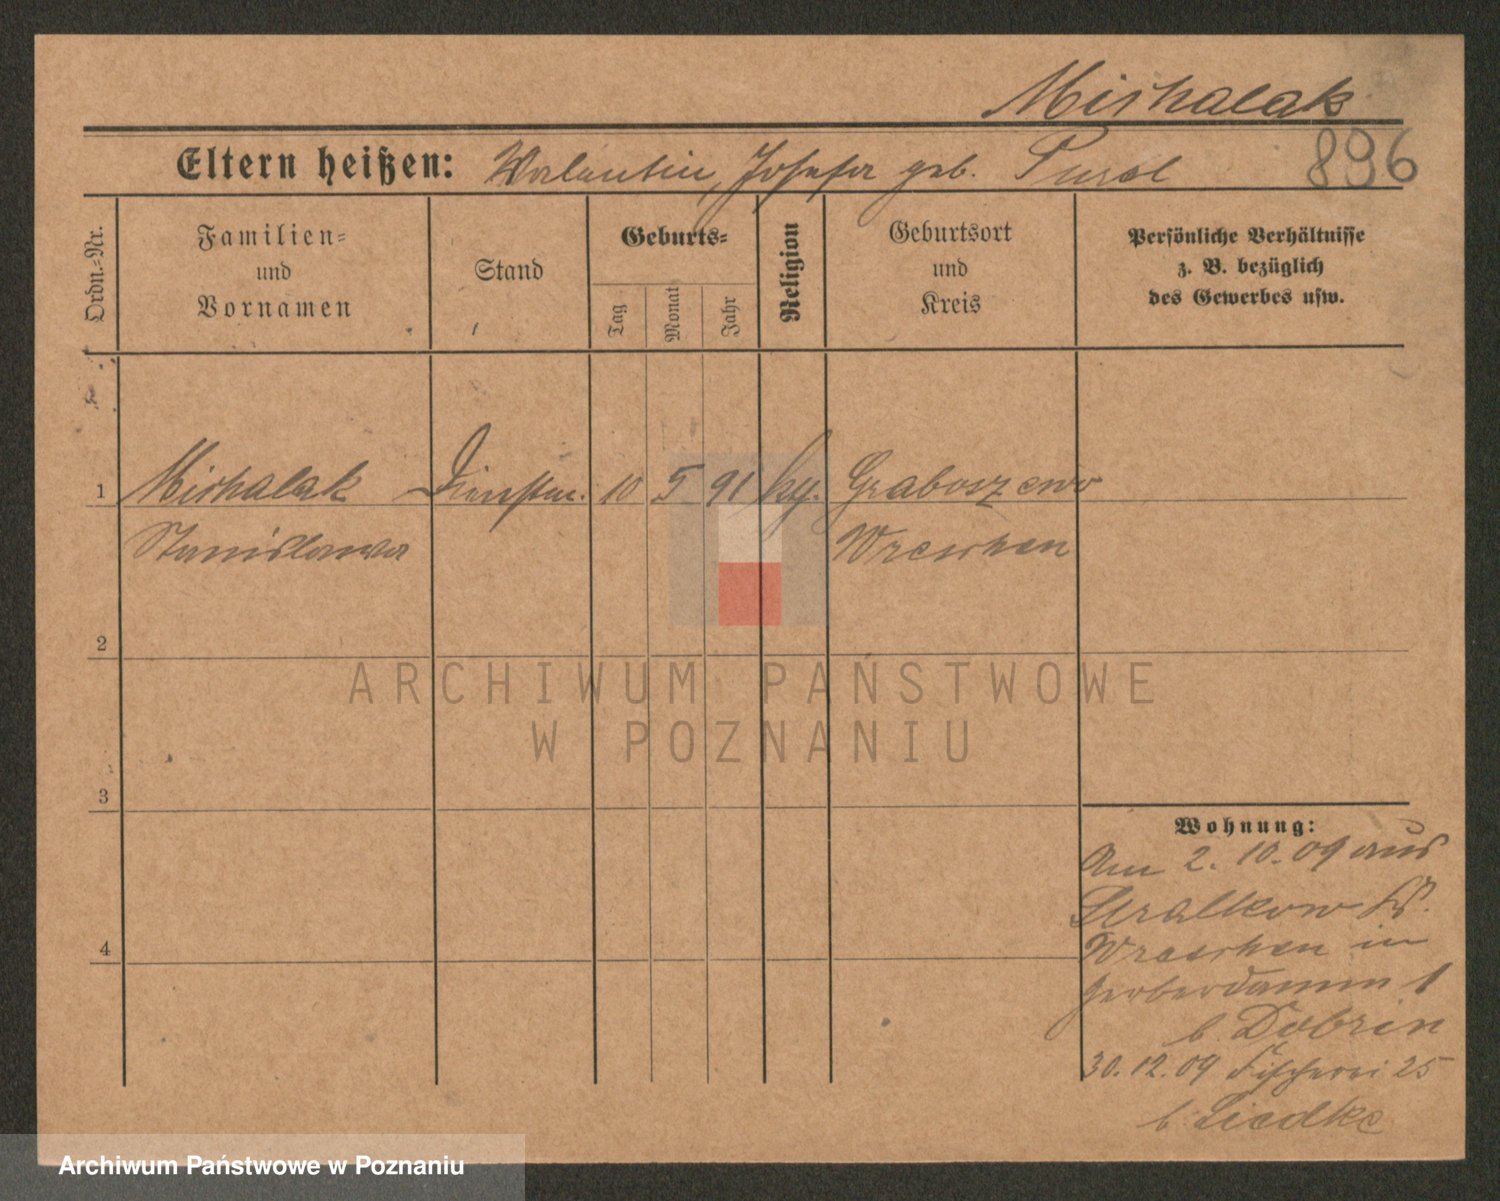 Michalak
896
Eltern heißen: Valentin, Josefa geb.
Ordn.-Nr.
Familien-
und
Vornamen
Stand
Geburts-
Tag
Monat
Jahr
Religion
Geburtsort
und
Kreis
Persönliche Verhältnisse
z. B. bezüglich
des Gewerbes usw.
1 Michalak 10 5 91 Graboszewo
Stanislawa Wreschen
2
3
4
Wohnung:
Am 2. 10. 09 aus
Stralkowo Kr.
Wreschen in
Gerberdamm 1
b. Dobrin
30. 12. 09 Fischerei 25
b. Liedke
ARCHIWUM PAŃSTWOWE
W POZNANIU
Archiwum Państwowe w Poznaniu